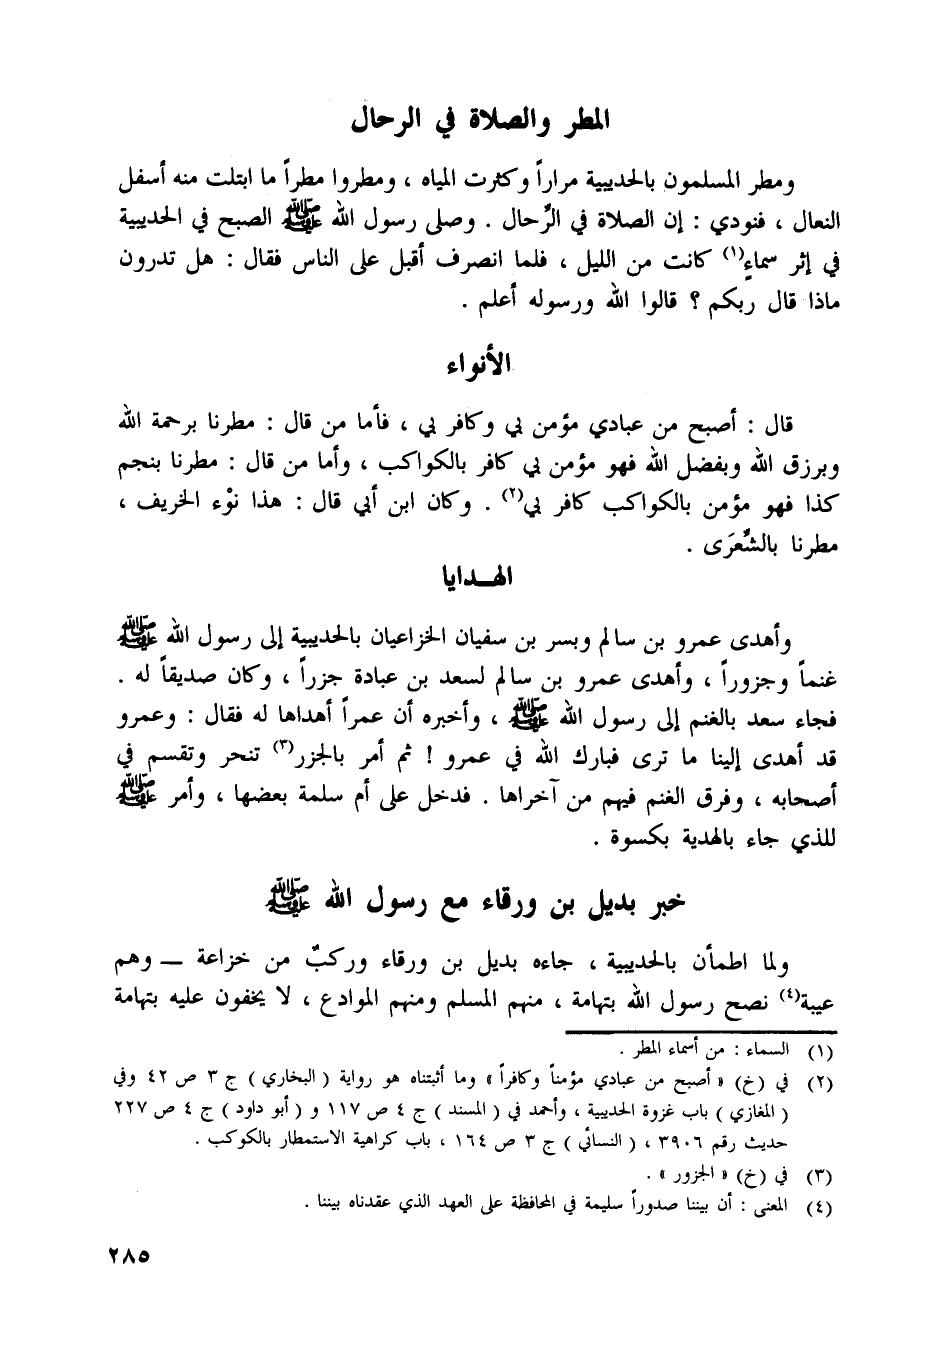 المطر والصلاة في الرحال
ومطر المسلمون بالحديبية مراراً وكثرت المياه ، ومطروا مطراً ما ابتلت منه أسفل
النعال ، فنودي : إن الصلاة في الرِّحال . وصلى رسول الله ﷺ الصبح في الحديبية
في إثر سماءٍ(١) كانت من الليل ، فلما انصرف أقبل على الناس فقال : هل تدرون
ماذا قال ربكم ؟ قالوا الله ورسوله أعلم .
الأنواء
قال : أصبح من عبادي مؤمن بي وكافر بي ، فأما من قال : مطرنا برحمة الله
وبرزق الله وبفضل الله فهو مؤمن بي كافر بالكواكب ، وأما من قال : مطرنا بنجم
كذا فهو مؤمن بالكواكب كافر بي(٢) . وكان ابن أبي قال : هذا نوْء الخريف ،
مطرنا بالشِّعرَى .
الهـدايا
وأهدى عمرو بن سالم وبسر بن سفيان الخزاعيان بالحديبية إلى رسول الله ﷺ
غنماً وجزوراً ، وأهدى عمرو بن سالم لسعد بن عبادة جزراً ، وكان صديقاً له .
فجاء سعد بالغنم إلى رسول الله ﷺ ، وأخبره أن عمراً أهداها له فقال : وعمرو
قد أهدى إلينا ما ترى فبارك الله في عمرو ! ثم أمر بالجزر(٣) تنحر وتقسم في
أصحابه ، وفرق الغنم فيهم من آخراها . فدخل على أم سلمة بعضها ، وأمر ﷺ
للذي جاء بالهدية بكسوة .
خبر بديل بن ورقاء مع رسول الله ﷺ
ولما اطمأن بالحديبية ، جاءه بديل بن ورقاء وركبٌ من خزاعة ـ وهم
عيبة(٤) نصح رسول الله بتهامة ، منهم المسلم ومنهم الموادع ، لا يخفون عليه بتهامة
(١) السماء : من أسماء المطر .
(٢) في (خ) « أصبح من عبادي مؤمناً وكافراً » وما أثبتناه هو رواية ( البخاري ) ج ٣ ص ٤٢ وفي
( المغازي ) باب غزوة الحديبية ، وأحمد في ( المسند ) ج ٤ ص ١١٧ و ( أبو داود ) ج ٤ ص ٢٢٧
حديث رقم ٣٩٠٦ ، ( النسائي ) ج ٣ ص ١٦٤ ، باب كراهية الاستمطار بالكوكب .
(٣) في (خ) « الجزور » .
(٤) المعنى : أن بيننا صدوراً سليمة في المحافظة على العهد الذي عقدناه بيننا .
٢٨٥